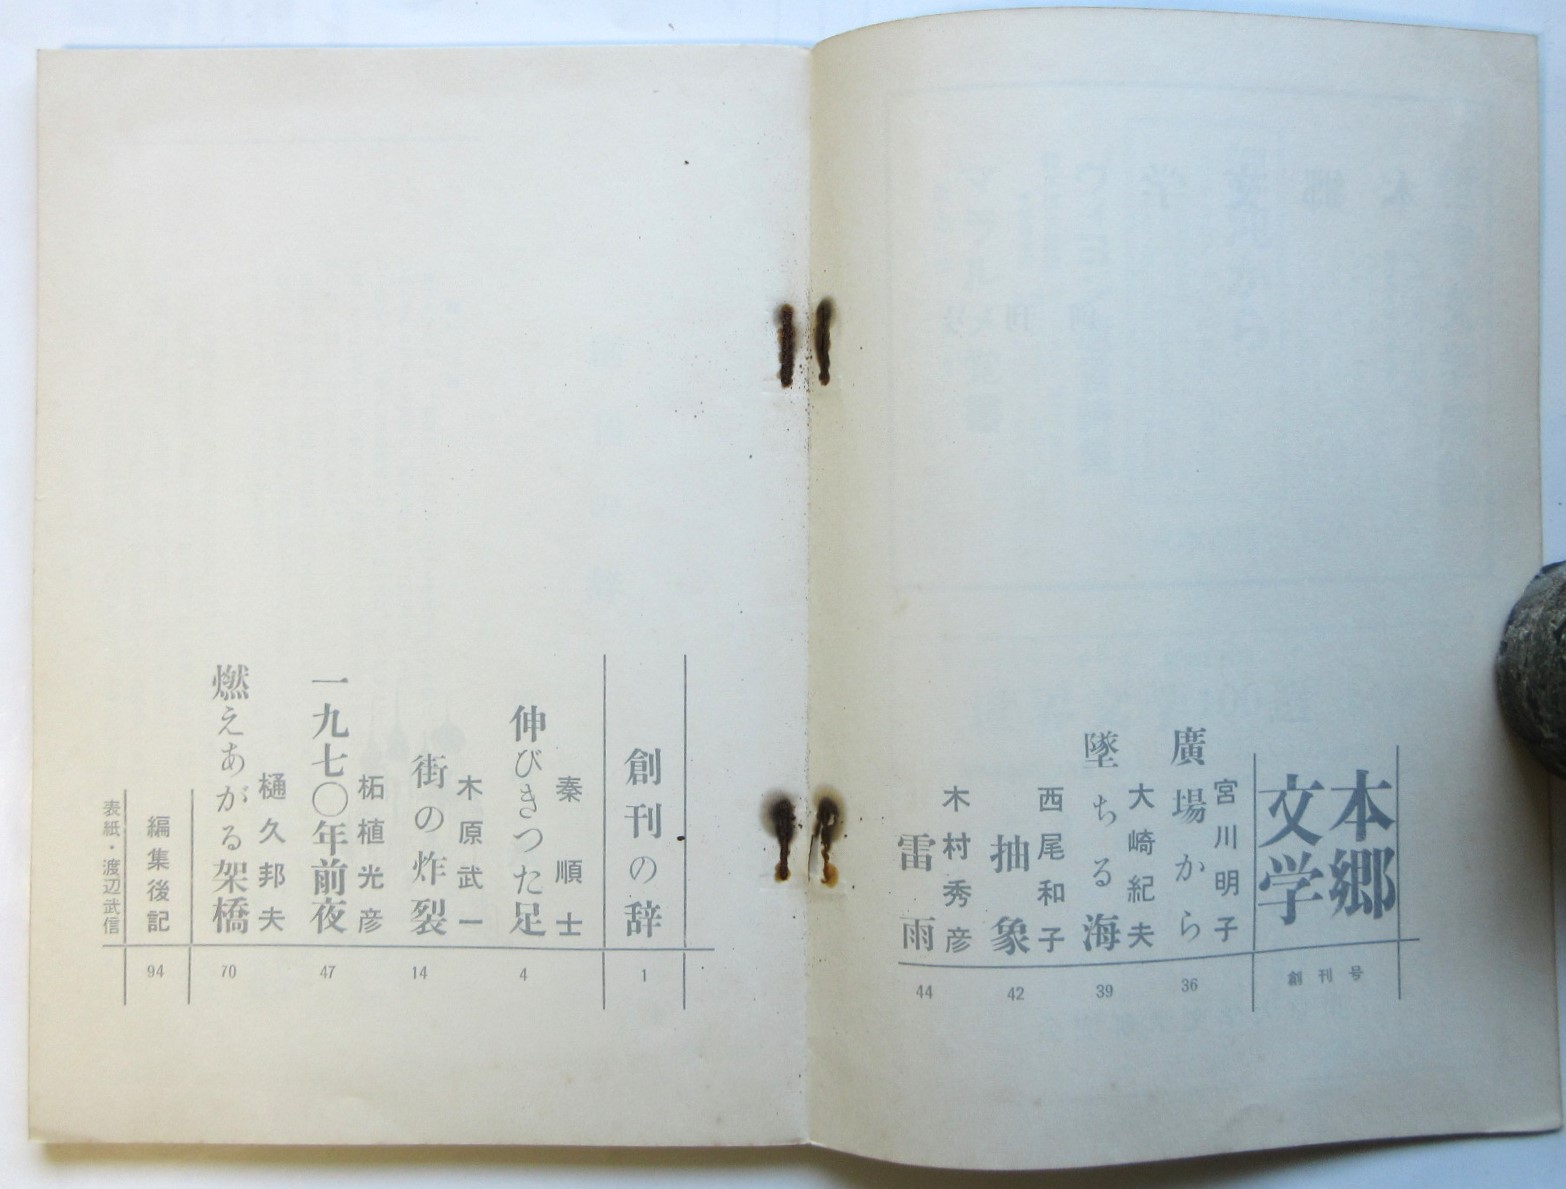 本郷
文学
創刊号
宮川明子
廣場から
36
大崎紀夫
墜ちる海
39
西尾和子
抽象
42
木村秀彦
雷雨
44
創刊の辞
1
秦順士
伸びきつた足
4
木原武一
街の炸裂
14
柘植光彦
一九七〇年前夜
47
樋久邦夫
燃えあがる架橋
70
編集後記
94
表紙・渡辺武信